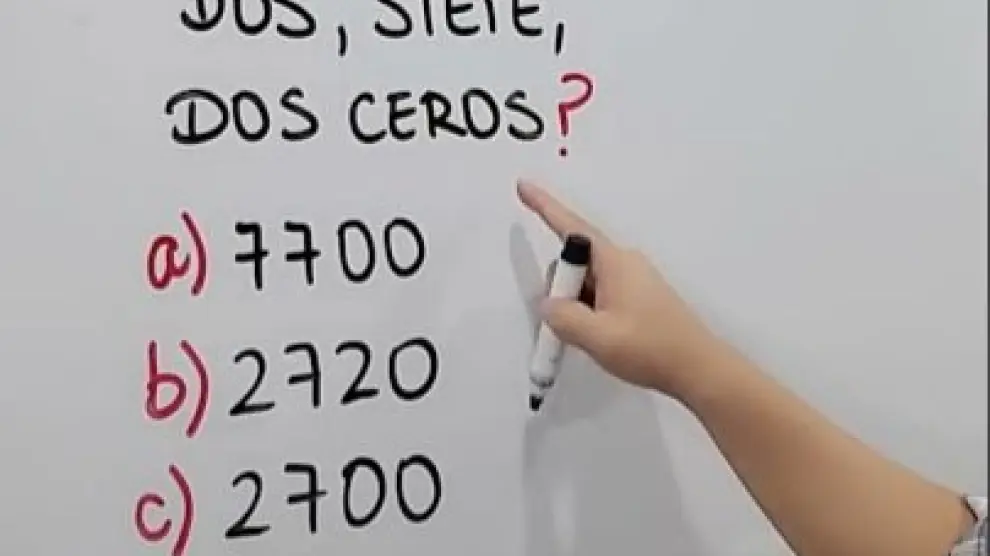 DOS, SIETE,
DOS CEROS?
a) 7700
b) 2720
c) 2700